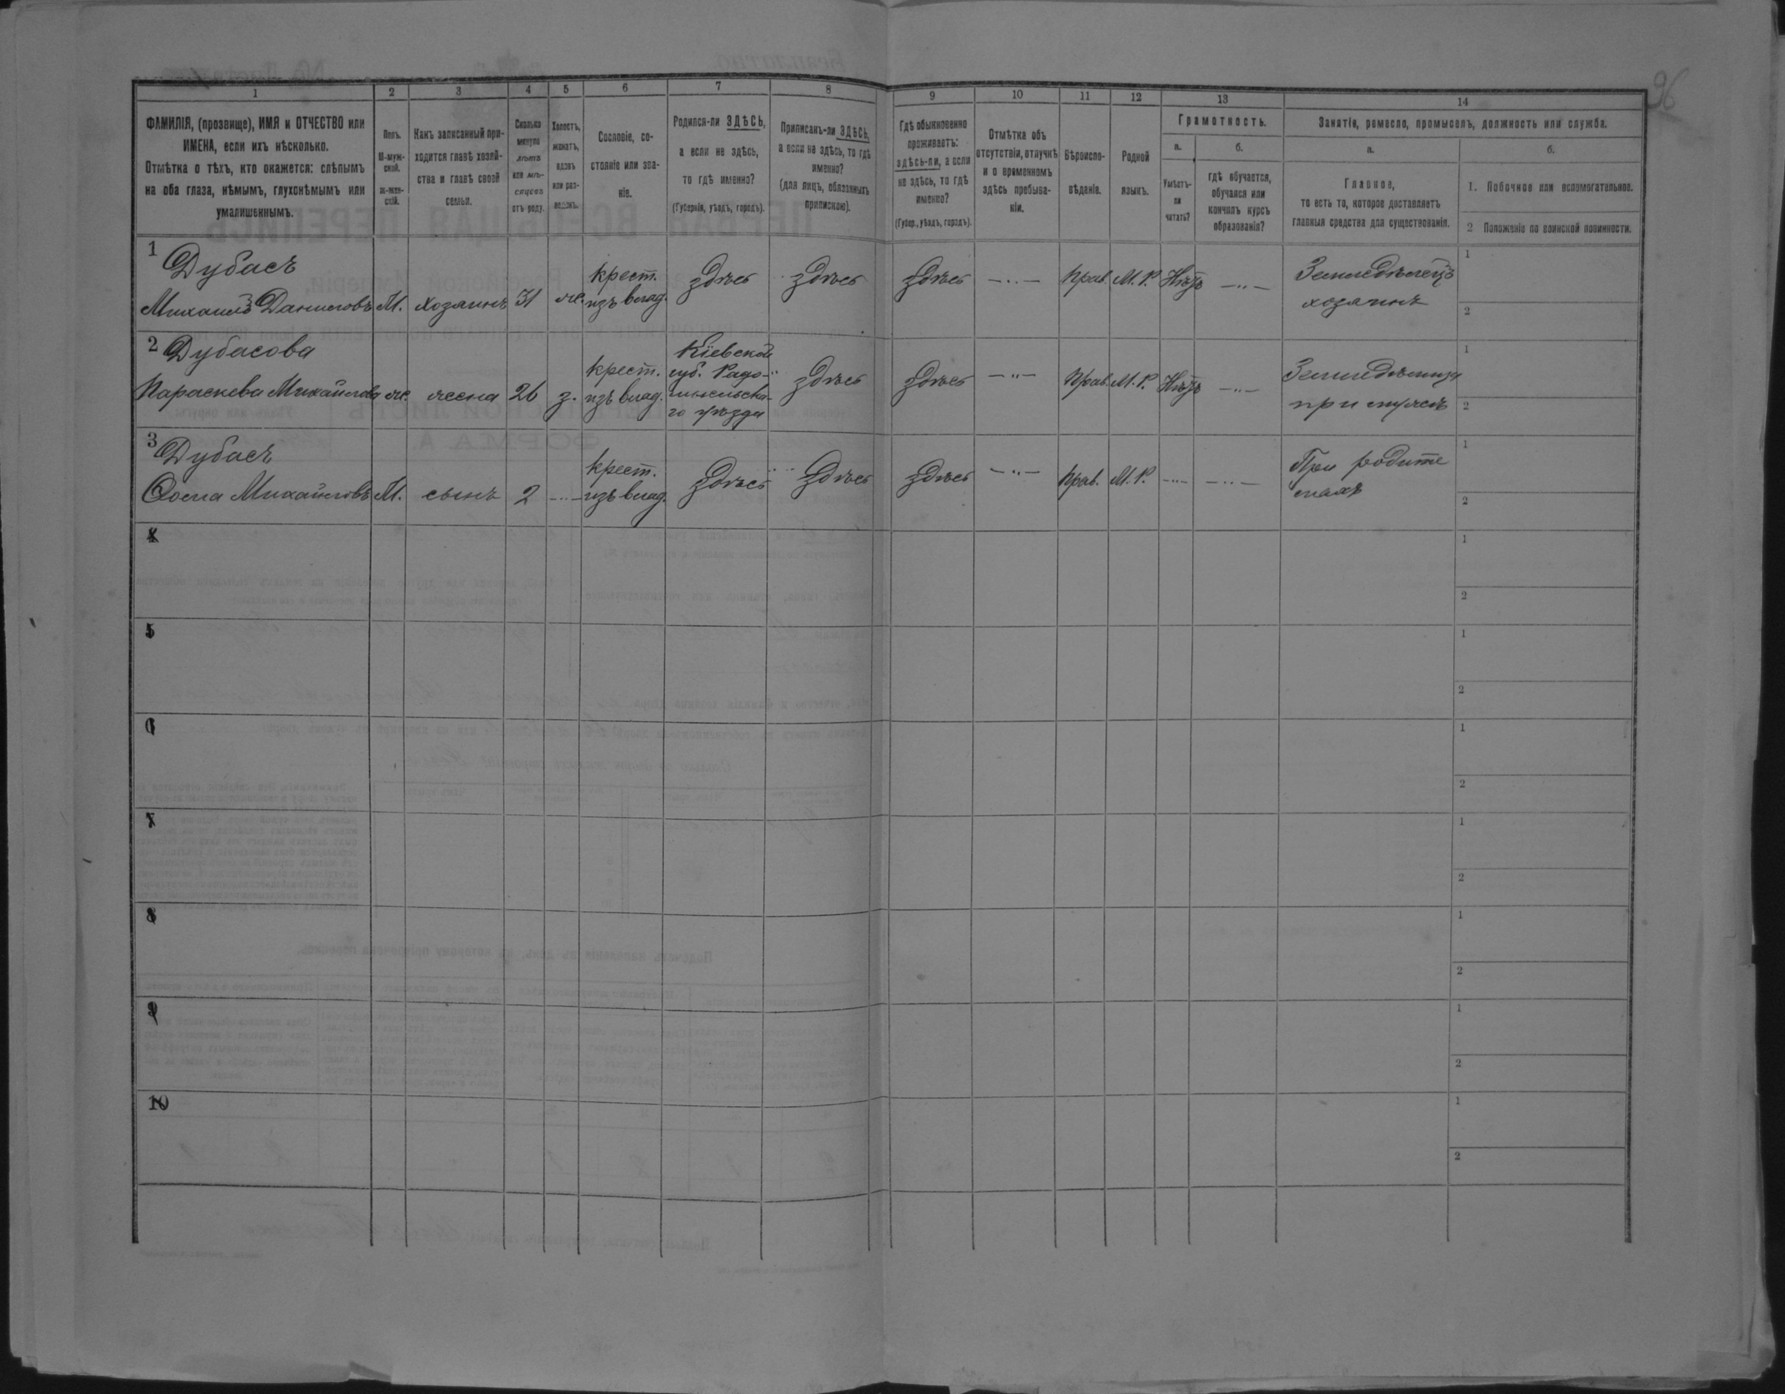 96
1 2 3 4 5 6 7 8 9 10 11 12 13 14
ФАМИЛІЯ, (прозвище), ИМЯ и ОТЧЕСТВО или
ИМЕНА, если ихъ нѣсколько.
Отмѣтка о тѣхъ, кто окажется: слѣпымъ
на оба глаза, нѣмымъ, глухонѣмымъ или
умалишеннымъ.
Полъ.
М-муж-
ской.
Ж-жен-
скій.
Какъ записанный при-
ходится главѣ хозяй-
ства и главѣ своей
семьи.
Сколько
минуло
лѣтъ
или мѣ-
сяцевъ
отъ роду.
Холостъ,
женатъ,
вдовъ
или раз-
веденъ.
Сословіе, со-
стояніе или зва-
ніе.
Родился-ли ЗДѢСЬ,
а если не здѣсь,
то гдѣ именно?
(Губернія, уѣздъ, городъ).
Приписанъ-ли ЗДѢСЬ,
а если не здѣсь, то гдѣ
именно?
(для лицъ, обязанныхъ
припискою).
Гдѣ обыкновенно
проживаетъ:
здѣсь-ли, а если
не здѣсь, то гдѣ
именно?
(Губер., уѣздъ, городъ).
Отмѣтка объ
отсутствіи, отлучкѣ
и о временномъ
здѣсь пребыва-
ніи.
Вѣроиспо-
вѣданіе.
Родной
языкъ.
Грамотность.
а.
Умѣетъ-
ли
читать?
б.
гдѣ обучается,
обучался или
кончилъ курсъ
образованія?
Занятіе, ремесло, промыселъ, должность или служба.
а.
Главное,
то есть то, которое доставляетъ
главныя средства для существованія.
б.
1. Побочное или вспомогательное.
2 Положеніе по воинской повинности.
1 Дубасъ
Михаилъ Даниловъ М. хозяинъ 31 ж. крест. изъ влад. здѣсь здѣсь здѣсь —..— Прав. М.Р. Нѣтъ —..— Земледѣлецъ
хозяинъ
1
2
2 Дубасова
Параскева Михайлова ж. жена 26 з. крест. изъ влад. Кіевской
губ. Радо-
мысльска-
го уѣзда
здѣсь здѣсь —..— Прав. М.Р. Нѣтъ —..— Земледѣлица
при мужѣ
1
2
3 Дубасъ
Михайловъ М. сынъ 2 —..— крест. изъ влад. Здѣсь Здѣсь здѣсь —..— Прав. М.Р. —..— —..— При родите
ляхъ
1
2
4
1
2
5
1
2
6
1
2
7
1
2
8
1
2
9
1
2
10
1
2